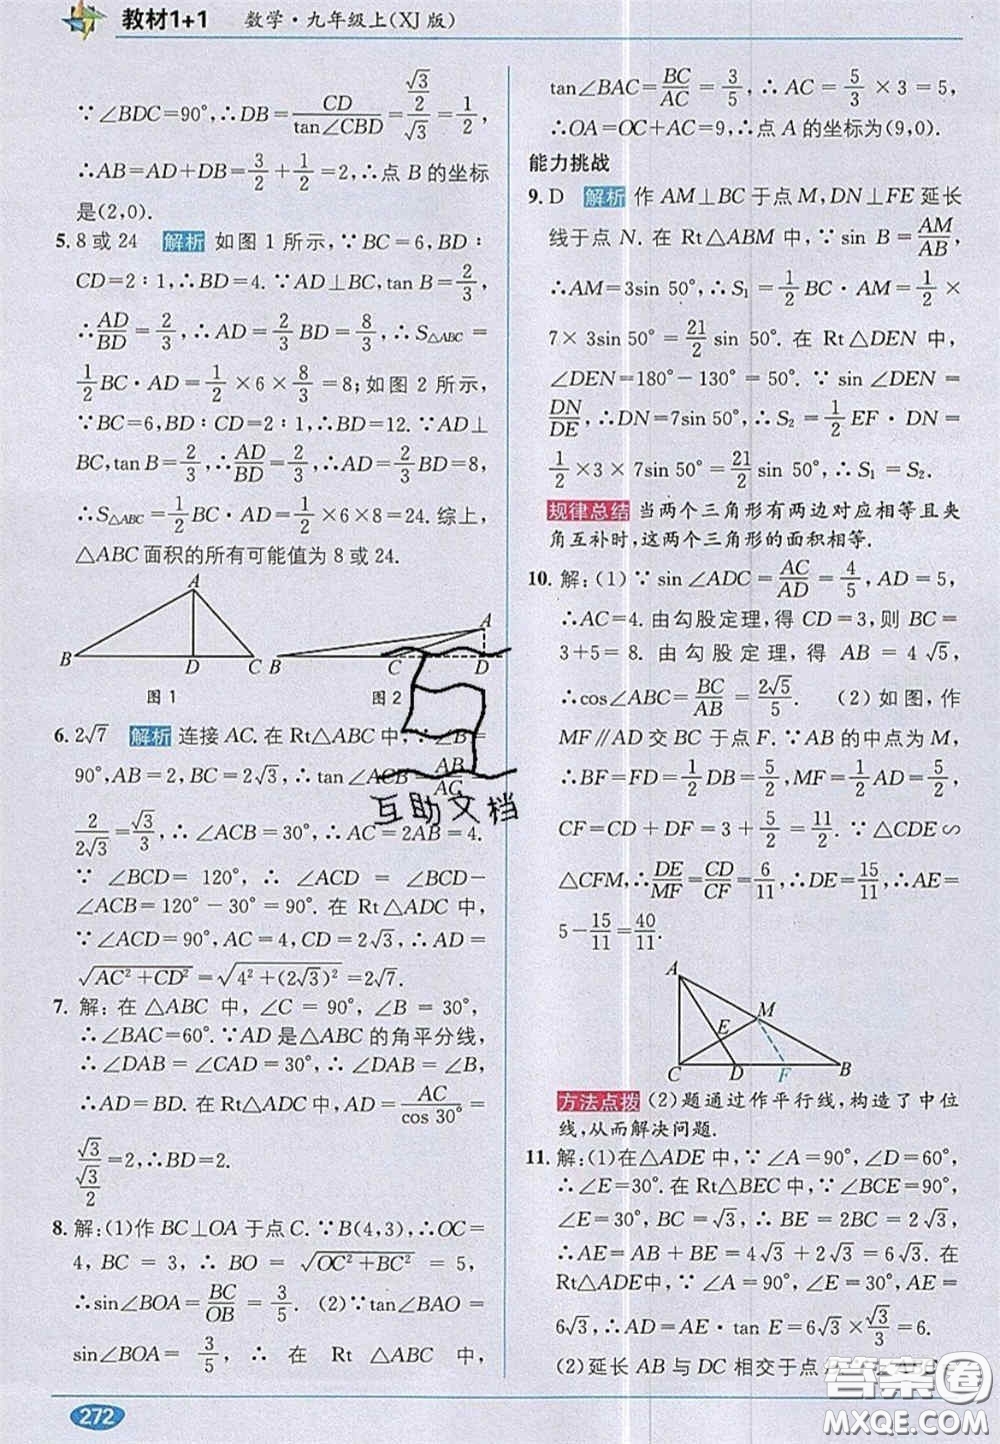 教材1+1 数学·九年级上(XJ版)
∵∠BDC=90°,∴DB=CD/tan∠CBD=(√3/2)/√3=1/2,
∴AB=AD+DB=3/2+1/2=2,∴点 B 的坐标
是(2,0).
5. 8或24 解析 如图1所示,∵BC=6,BD∶
CD=2∶1,∴BD=4.∵AD⊥BC,tan B=2/3,
∴AD/BD=2/3,∴AD=2/3BD=8/3,∴S△ABC=
1/2BC·AD=1/2×6×8/3=8;如图2所示,
∵BC=6,BD∶CD=2∶1,∴BD=12.∵AD⊥
BC,tan B=2/3,∴AD/BD=2/3,∴AD=2/3BD=8,
∴S△ABC=1/2BC·AD=1/2×6×8=24.综上,
△ABC面积的所有可能值为8或24.
A B D C A B C D
图1 图2
6. 2√7 解析 连接AC.在Rt△ABC中,∵∠B=
90°,AB=2,BC=2√3,∴tan∠ACB=AB/AC=
2/(2√3)=√3/3,∴∠ACB=30°,∴AC=2AB=4.
∵∠BCD=120°,∴∠ACD=∠BCD-
∠ACB=120°-30°=90°.在Rt△ADC中,
∵∠ACD=90°,AC=4,CD=2√3,∴AD=
√(AC²+CD²)=√(4²+(2√3)²)=2√7.
7. 解:在△ABC中,∠C=90°,∠B=30°,
∴∠BAC=60°.∵AD是△ABC的角平分线,
∴∠DAB=∠CAD=30°,∴∠DAB=∠B,
∴AD=BD.在Rt△ADC中,AD=AC/cos 30°=
√3/(√3/2)=2,∴BD=2.
8. 解:(1)作BC⊥OA于点C.∵B(4,3),∴OC=
4,BC=3,∴BO=√(OC²+BC²)=5,
∴sin∠BOA=BC/OB=3/5.(2)∵tan∠BAO=
sin∠BOA=3/5,∴在Rt△ABC中,
tan∠BAC=BC/AC=3/5,∴AC=5/3×3=5,
∴OA=OC+AC=9,∴点A的坐标为(9,0).
能力挑战
9. D 解析 作AM⊥BC于点M,DN⊥FE延长
线于点N.在Rt△ABM中,∵sin B=AM/AB,
∴AM=3sin 50°,∴S₁=1/2BC·AM=1/2×
7×3sin 50°=21/2sin 50°.在Rt△DEN中,
∠DEN=180°-130°=50°.∵sin∠DEN=
DN/DE,∴DN=7sin 50°,∴S₂=1/2EF·DN=
1/2×3×7sin 50°=21/2sin 50°,∴S₁=S₂.
规律总结 当两个三角形有两边对应相等且夹
角互补时,这两个三角形的面积相等.
10. 解:(1)∵sin∠ADC=AC/AD=4/5,AD=5,
∴AC=4.由勾股定理,得CD=3,则BC=
3+5=8.由勾股定理,得AB=4√5,
∴cos∠ABC=BC/AB=2√5/5.(2)如图,作
MF∥AD交BC于点F.∵AB的中点为M,
∴BF=FD=1/2DB=5/2,MF=1/2AD=5/2,
CF=CD+DF=3+5/2=11/2.∵△CDE∽
△CFM,∴DE/MF=CD/CF=6/11,∴DE=15/11,∴AE=
5-15/11=40/11.
A M E C D F B
方法点拨 (2)题通过作平行线,构造了中位
线,从而解决问题.
11. 解:(1)在△ADE中,∵∠A=90°,∠D=60°,
∴∠E=30°.在Rt△BEC中,∵∠BCE=90°,
∠E=30°,BC=2√3,∴BE=2BC=4√3,
∴AE=AB+BE=2√3+4√3=6√3.在
Rt△ADE中,∵∠A=90°,∠E=30°,AE=
6√3,∴AD=AE·tan E=6√3×√3/3=6.
(2)延长AB与DC相交于点
272
互助文档
答案圈
MXQE.COM